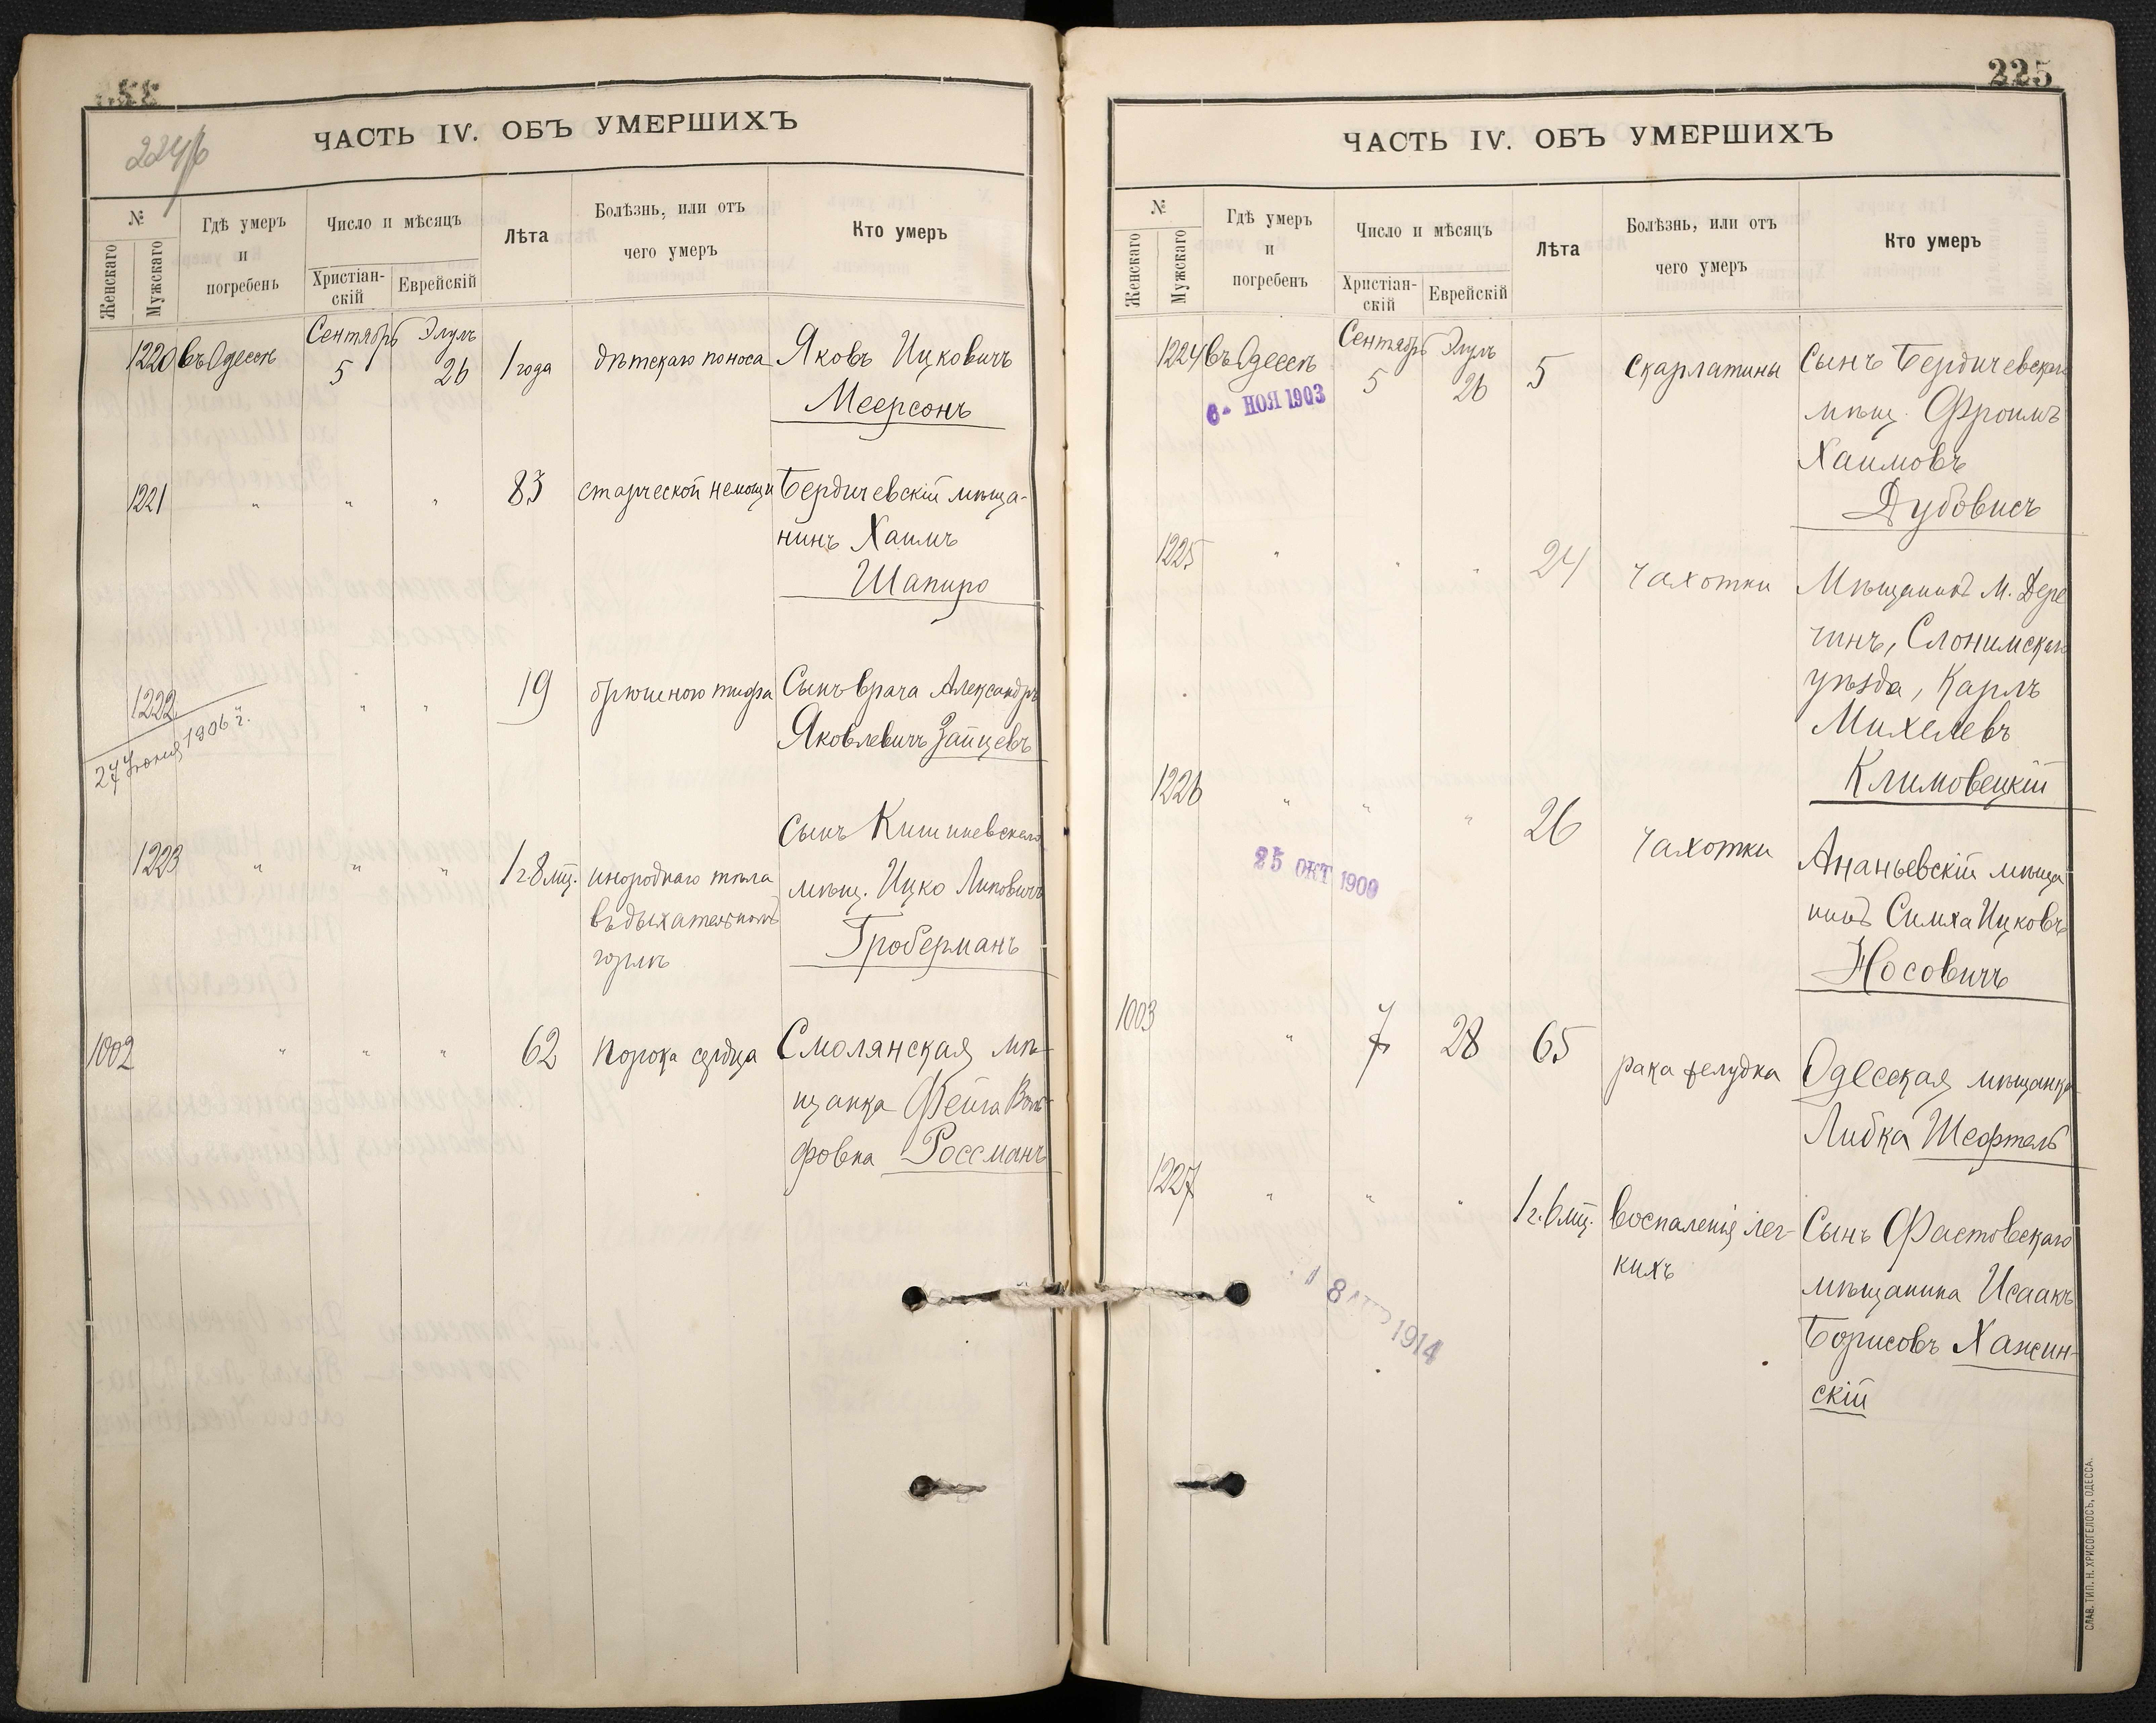 224/б
ЧАСТЬ IV. ОБЪ УМЕРШИХЪ
№
Женскаго
Мужскаго
Гдѣ умеръ
и
погребенъ
Число и мѣсяцъ
Христіан-
скій
Еврейскій
Лѣта
Болѣзнь, или отъ
чего умеръ
Кто умеръ
Сентябрь Элулъ
1220 въ Одессѣ 5 26 1 года дѣтскаго поноса Яковъ Ицковичъ
Меерсонъ
1221 " " " 83 старческой немощи Бердичевскій мѣща-
нинъ Хаимъ
Шапиро
1222 " " " 19 брюшного тифа Сынъ врача Александръ
Яковлевичъ Зайцевъ
27 Июня 1906 г.
Сынъ Кишиневскаго
1223 " " " 1 г. 8 мц. инороднаго тѣла мѣщ. Ицко Липовичъ
въ дыхательномъ
горлѣ
Гроберманъ
1002 " " " 62 порока сердца Смолянская мѣ-
щанка Фейга Воль-
фовна Россманъ
225
ЧАСТЬ IV. ОБЪ УМЕРШИХЪ
№
Женскаго
Мужскаго
Гдѣ умеръ
и
погребенъ
Число и мѣсяцъ
Христіан-
скій
Еврейскій
Лѣта
Болѣзнь, или отъ
чего умеръ
Кто умеръ
Сентябрь Элулъ
1224 въ Одессѣ 5 26 5 Скарлатины Сынъ Бердичевскаго
6- НОЯ 1903
мѣщ. Фроимъ
Хаимовъ
Дубовисъ
1225 " " " 24 Чахотки Мѣщанинъ м. Дере
чинъ, Слонимскаго
уѣзда, Карлъ
Михелевъ
Климовецкій
1226 " " " 26 Чахотки Ананьевскій мѣща
25 ОКТ 1909
нинъ Симха Ицковъ
Носовичъ
1003 " 7 28 65 рака желудка Одесская мѣщанка
Либка Шефтель
1227 " " " 1 г. 6 мц. воспаленія лег-
кихъ
Сынъ Фастовскаго
мѣщанина Исаакъ
Борисовъ Хажин-
скій
18 1914
СЛАВ. ТИП. Н. ХРИСОГЕЛОСЪ, ОДЕССА.